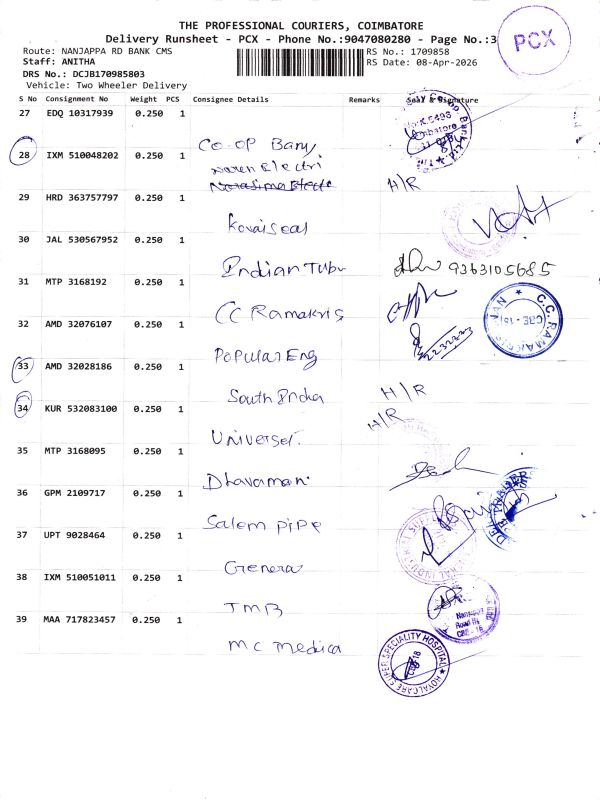 THE PROFESSIONAL COURIERS, COIMBATORE
Delivery Runsheet - PCX - Phone No.:9047080280 - Page No.:3
PCX
Route: NANJAPPA RD BANK CMS
RS No.: 1709858
Staff: ANITHA
RS Date: 08-Apr-2026
DRS No.: DCJB170985803
Vehicle: Two Wheeler Delivery
S No Consignment No Weight PCS Consignee Details Remarks Seal & Signature
27 EDQ 10317939 0.250 1
Co-op Bank
28 IXM 510048202 0.250 1
naren Electri
H/R
29 HRD 363757797 0.250 1
Kovai seal
30 JAL 530567952 0.250 1
Indian Tube
9363105685
31 MTP 3168192 0.250 1
CC Ramakris
C.C.RAMAKRISHNAN
CBE - 18
32 AMD 32076107 0.250 1
Popular Eng
33 AMD 32028186 0.250 1
South India
H/R
34 KUR 532083100 0.250 1
Universal
H/R
35 MTP 3168095 0.250 1
Dhavamani
36 GPM 2109717 0.250 1
Salem pipe
37 UPT 9028464 0.250 1
General
38 IXM 510051011 0.250 1
TMB
Nanjappa
Road Br.
CBE - 18
39 MAA 717823457 0.250 1
MC Medica
ROYALCARE SUPER SPECIALITY HOSPITAL
CBE-18